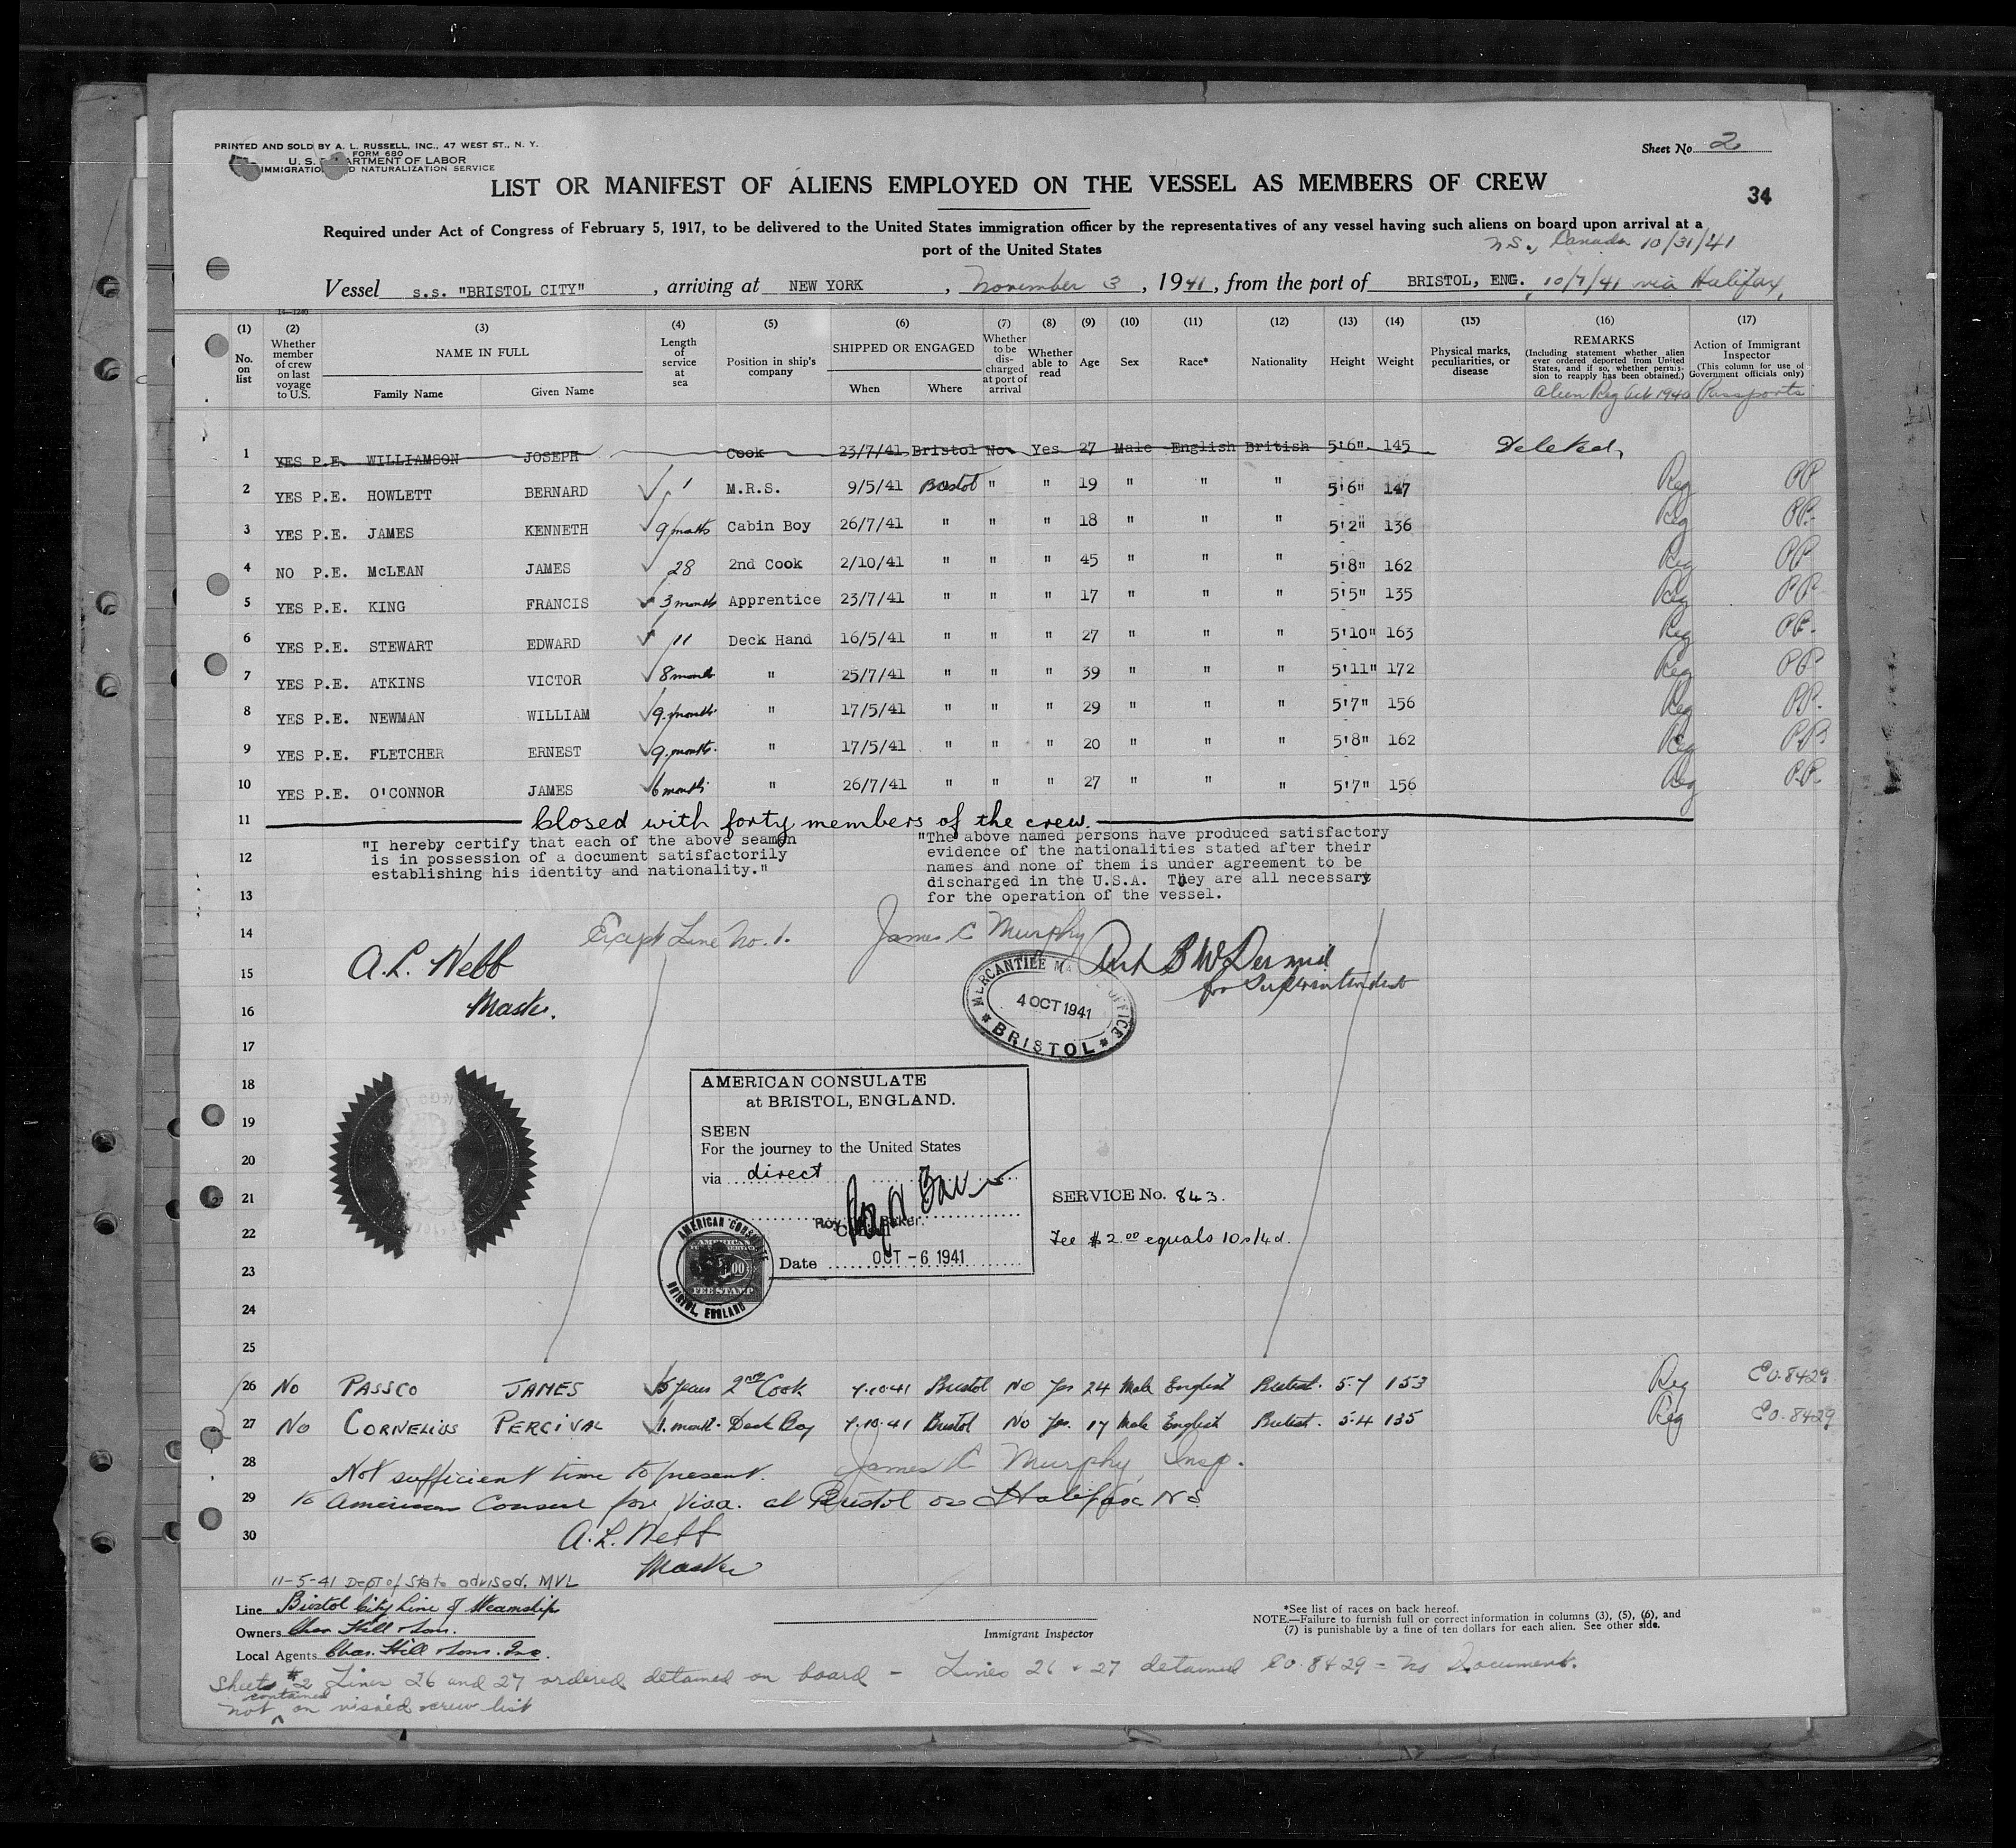 PRINTED AND SOLD BY A. L. RUSSELL, INC., 47 WEST ST., N. Y.
FORM 680
U. S. DEPARTMENT OF LABOR
IMMIGRATION AND NATURALIZATION SERVICE
Sheet No. 2
LIST OR MANIFEST OF ALIENS EMPLOYED ON THE VESSEL AS MEMBERS OF CREW
34
Required under Act of Congress of February 5, 1917, to be delivered to the United States immigration officer by the representatives of any vessel having such aliens on board upon arrival at a
port of the United States
N.S., Canada 10/31/41
Vessel s.s. "BRISTOL CITY", arriving at NEW YORK, November 3, 1941, from the port of BRISTOL, ENG. 10/7/41 via Halifax,
14-1240
(1) (2) (3) (4) (5) (6) (7) (8) (9) (10) (11) (12) (13) (14) (15) (16) (17)
No. on list
Whether member of crew on last voyage to U.S.
NAME IN FULL
Family Name Given Name
Length of service at sea
Position in ship's company
SHIPPED OR ENGAGED
When Where
Whether to be discharged at port of arrival
Whether able to read
Age
Sex
Race*
Nationality
Height
Weight
Physical marks, peculiarities, or disease
REMARKS
(Including statement whether alien ever ordered deported from United States, and if so, whether permission to reapply has been obtained.)
Action of Immigrant Inspector
(This column for use of Government officials only)
Alien Reg Act 1940 Passports
1 YES P.E. WILLIAMSON JOSEPH Cook 23/7/41 Bristol No Yes 27 Male English British 5'6" 145 Deleted,
2 YES P.E. HOWLETT BERNARD 1 M.R.S. 9/5/41 Bristol " " 19 " " " 5'6" 147 Reg PP
3 YES P.E. JAMES KENNETH 9 months Cabin Boy 26/7/41 " " " 18 " " " 5'2" 136 Reg PP.
4 NO P.E. McLEAN JAMES 28 2nd Cook 2/10/41 " " " 45 " " " 5'8" 162 Reg PP
5 YES P.E. KING FRANCIS 3 months Apprentice 23/7/41 " " " 17 " " " 5'5" 135 Reg PP
6 YES P.E. STEWART EDWARD 11 Deck Hand 16/5/41 " " " 27 " " " 5'10" 163 Reg PP.
7 YES P.E. ATKINS VICTOR 8 months " 25/7/41 " " " 39 " " " 5'11" 172 Reg PP
8 YES P.E. NEWMAN WILLIAM 9. months " 17/5/41 " " " 29 " " " 5'7" 156 Reg PP.
9 YES P.E. FLETCHER ERNEST 9. months. " 17/5/41 " " " 20 " " " 5'8" 162 Reg P.P.
10 YES P.E. O'CONNOR JAMES 6 months " 26/7/41 " " " 27 " " " 5'7" 156 Reg P.P.
11 Closed with forty members of the crew.
"I hereby certify that each of the above seamen
is in possession of a document satisfactorily
establishing his identity and nationality."
"The above named persons have produced satisfactory
evidence of the nationalities stated after their
names and none of them is under agreement to be
discharged in the U.S.A. They are all necessary
for the operation of the vessel.
12
13
14 Except Line No. 1. James C Murphy
15 A.L. Webb
for Superintendent
16 Master.
MERCANTILE MARINE OFFICE
4 OCT 1941
BRISTOL
17
18 AMERICAN CONSULATE
at BRISTOL, ENGLAND.
19 SEEN
For the journey to the United States
20
via direct
21 SERVICE No. 843.
22 Fee $2.00 equals 10s/4d.
Date OCT - 6 1941
AMERICAN CONSULATE
BRISTOL, ENGLAND
FEE STAMP
23
24
25
26 No PASSCO JAMES 5 years 2nd Cook 7.10.41 Bristol No Yes 24 Male English British. 5.7 153 Reg EO.8429
27 No CORNELIUS PERCIVAL 1. month. Deck Boy 7.10.41 Bristol No Yes. 17 Male English British. 5.4 135 Reg EO.8429
28 Not sufficient time to present. James C Murphy, Insp.
29 to American Consul for Visa. at Bristol or Halifax N S.
30 A.L. Webb
Master
11-5-41 Dept of State advised. MVL
Line Bristol City Line of Steamship
Owners Chas. Hill & Sons.
Local Agents Chas. Hill & Sons. Inc.
Immigrant Inspector
*See list of races on back hereof.
NOTE.—Failure to furnish full or correct information in columns (3), (5), (6), and
(7) is punishable by a fine of ten dollars for each alien. See other side.
Sheet #2 Lines 26 and 27 ordered detained on board - Lines 26 & 27 detained EO.8429 = No Document.
not contained on visaed crew list